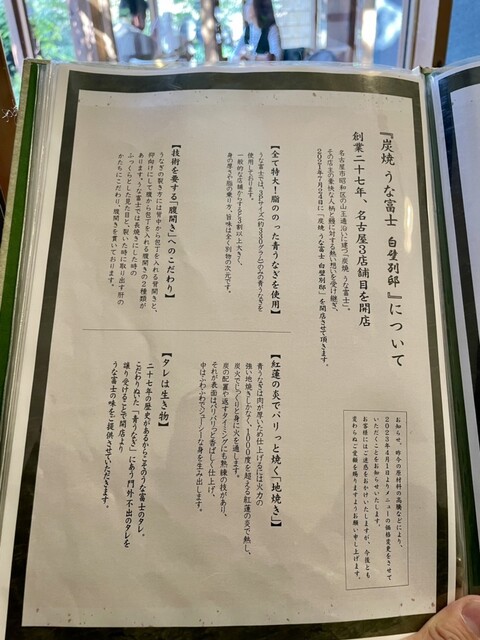 『炭焼 うな富士 白壁別邸』について
創業二十七年、名古屋3店舗目を開店
名古屋市昭和区の山王通沿いに建つ「炭焼 うな富士」。
その店主の豪快な人柄と鰻に対する熱い想いを受け継ぎ、
2021年7月24日に「炭焼 うな富士 白壁別邸」を開店させて頂きます。
【全て特大！脂ののった青うなぎを使用】
うな富士では、3Pサイズ(約330グラム)のみの青うなぎを
使用しております。
一般的な店舗からすると3割以上大きく、
身の厚さや脂の乗り方、旨味は全く別物の次元です。
【技術を要する「腹開き」へのこだわり】
うなぎの裂き方には背中から包丁を入れる背開きと、
卵向けにして腹から包丁を入れる腹開きの2種類が
あります。うな富士では長焼きにした時の
ふっくらとした見た目と、裂いた時に取り出す肝の
かたちにこだわり、腹開きを貫いております。
お知らせ、昨今の原材料の高騰などにより、
2023年4月1日よりメニューの価格変更をさせて
いただくことをお知らせいたします。
お客様にはご迷惑をおかけいたしますが、今後とも
変わらぬご愛顧を賜りますようお願い申し上げます。
【紅蓮の炎でパリっと焼く「地焼き」】
青うなぎは肉が厚いため仕上げるには火力の
強い地焼きしかなく、1000度を超える紅蓮の炎で熱し、
炭火でじっくりと身に火を通します。
炭の配置や返すタイミングにも熟練の技があり、
それが表面はパリパリっと香ばしく仕上げ、
中はふわふわでジューシーな身を生み出します。
【タレは生き物】
二十七年の歴史があるからこそのうな富士のタレ。
こだわりぬいた「青うなぎ」にあう門外不出のタレを
譲り受けることで開店より
うな富士の味をご提供させていただきます。